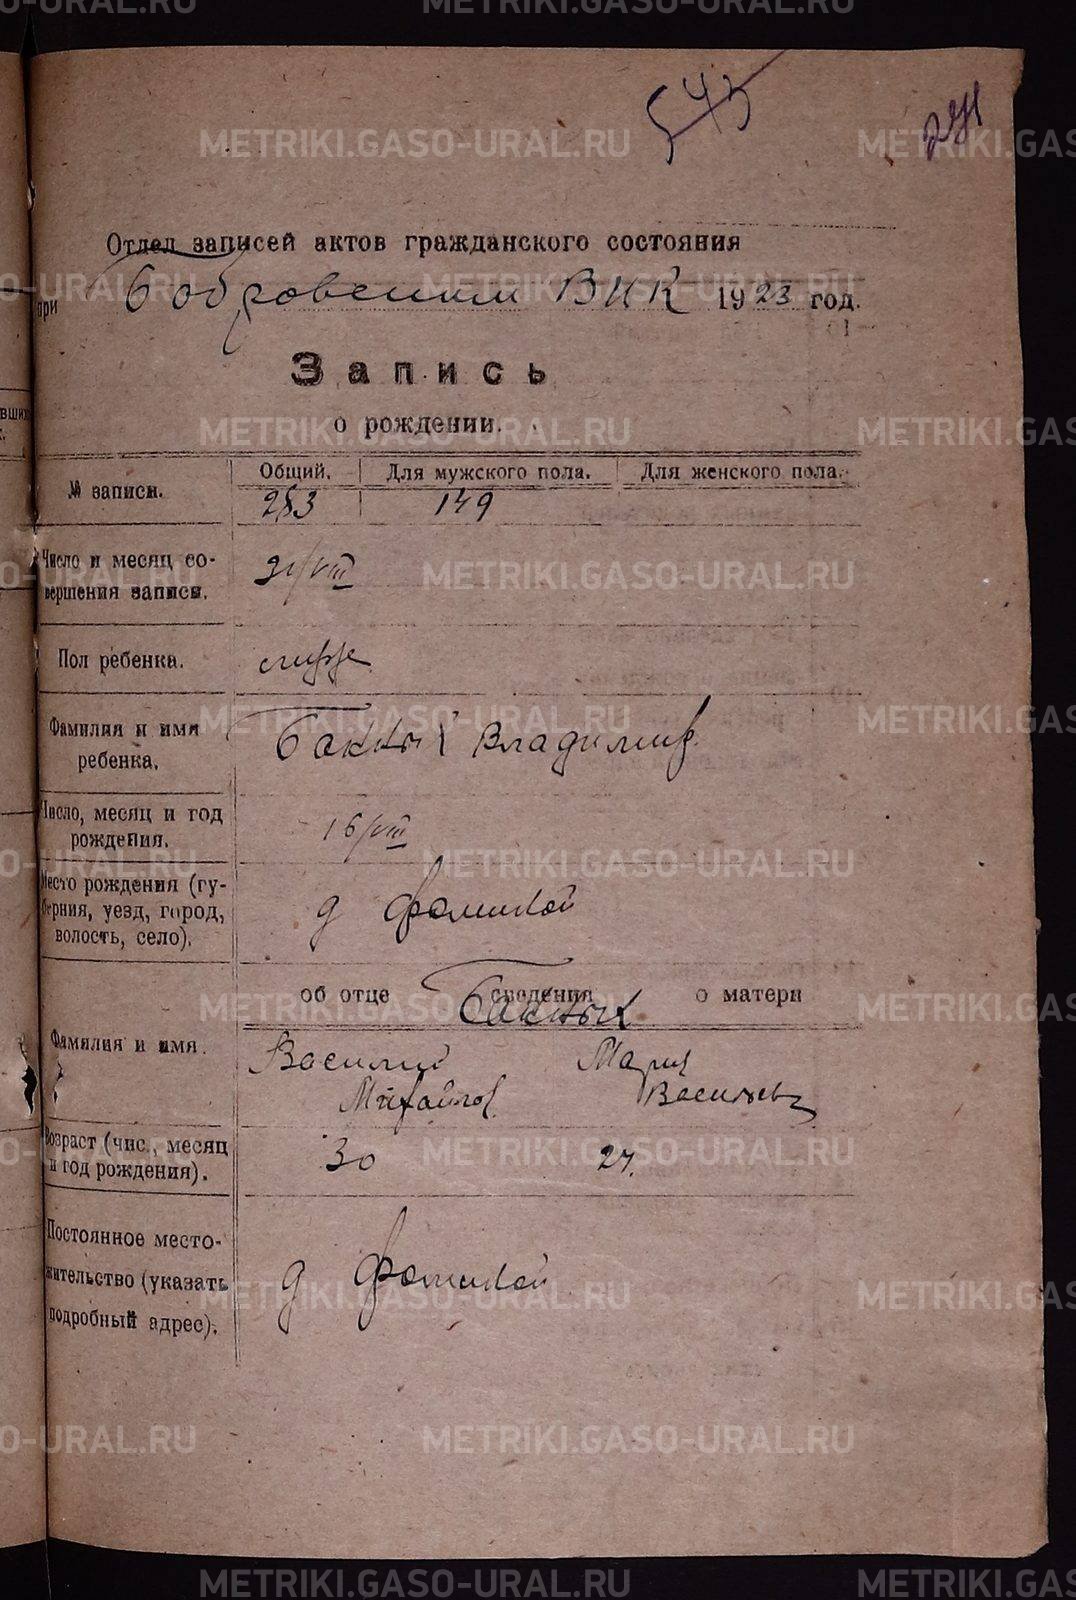 543
Отдел записей актов гражданского состояния
при Бобровским ВИК 1923 год.
Запись
о рождении.
Общий. Для мужского пола. Для женского пола.
№ записи. 283 149
Число и месяц совершения записи. 31/VIII
Пол ребенка.
Фамилия и имя ребенка. Бакиных Владимир
Число, месяц и год рождения. 16/VIII
Место рождения (губерния, уезд, город, волость, село). д Фоминой
об отце сведения о матери
Фамилия и имя. Василий Мария
Михайлов Васильевн
Возраст (чис., месяц и год рождения). 30 27.
Постоянное местожительство (указать подробный адрес). д Фоминой
METRIKI.GASO-URAL.RU